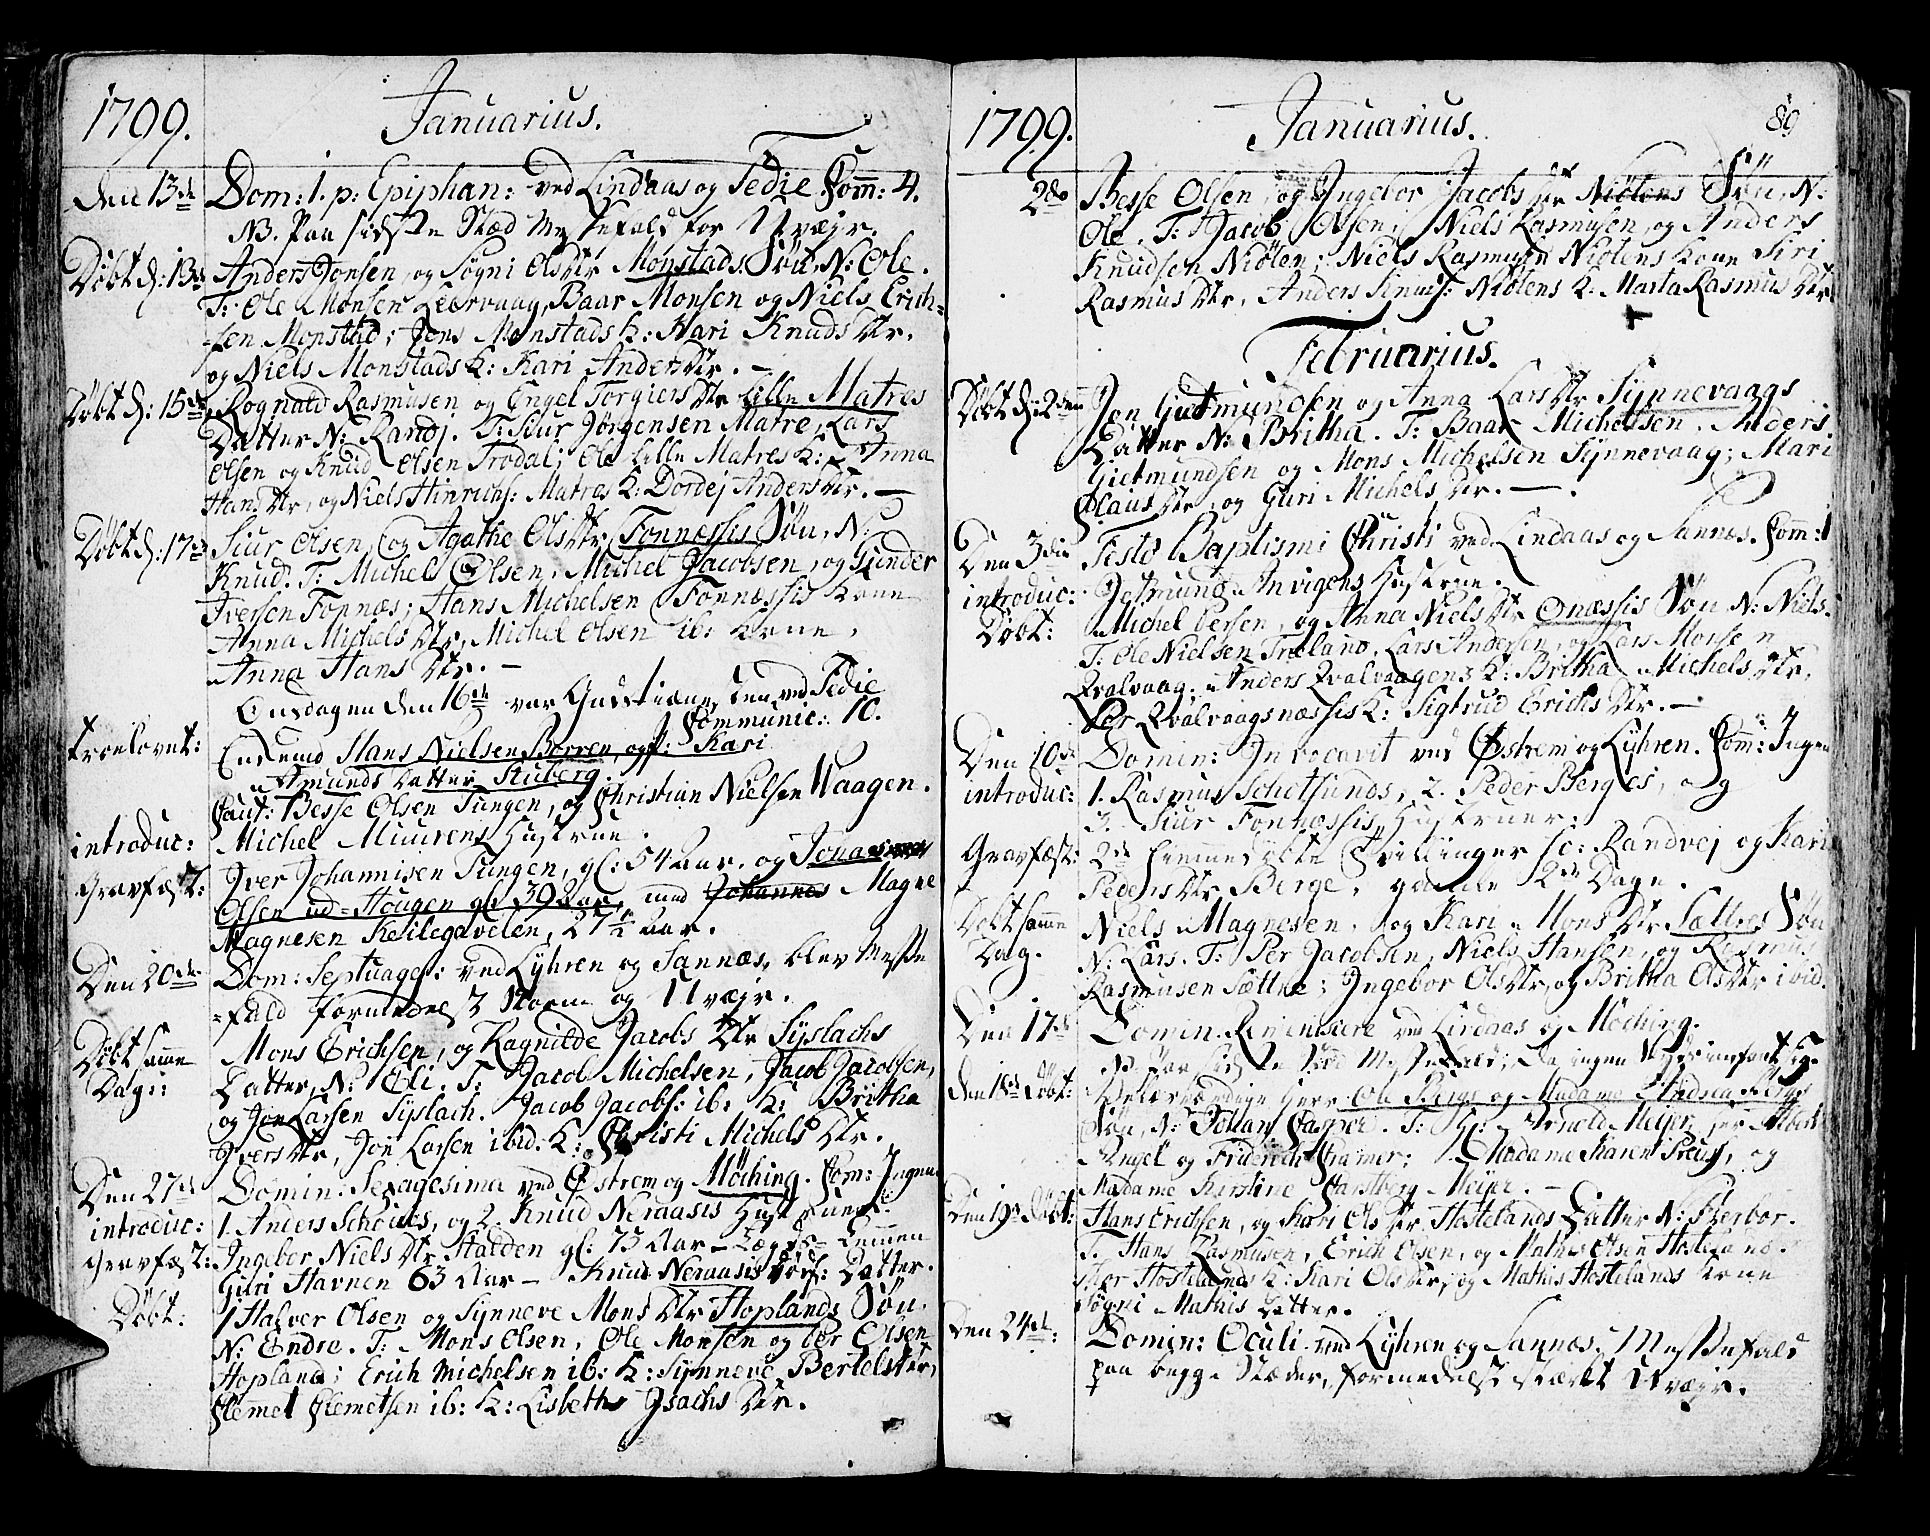 1799. Januarius.
den 13de Dom: 1. p: Epiphan: ved Lindaas og Sedie Comm: 4.
NB. Paa sidste Stæd Messefald for Uvejr.
Döbt d: 13de Anders Jonsen, og Søgni Ols Dtr Monstads Søn, N: Ole.
T: Ole Monsen Leervaag, Baar Monsen og Niels Erich-
sen Monstad; Jens Monstads K: Kari Knuds Dtr.
og Niels Monstads K: Kari Anders Dtr. —
Döbt d: 15de Rognald Rasmusen og Engel Torgiers Dtr Lille Matres
Datter N: Randj. T: Siur Jørgensen Matre, Lars
Olsen og Knud Olsen Trodal; Ole Lille Matres K: Anna
Hans Dtr, og Niels Hinrichs: Matres K: Dordej Anders Dtr. —
Döbt d: 17de Siur Olsen, og Agathe Ols Dtr Fonnessis Søn, N:
Knud. T: Michels Olsen, Michel Jacobsen, og Gunder
Iversen Fonnæs; Hans Michelsen Fonnæssis Kone
Anna Michels Dtr, Michel Olsen ib: Kone,
Anna Hans Dtr. —
Onsdagen den 16de var Gudstienesten ved Sedie
Communic: 10.
troelovet: Enkemd Hans Nielsen Borren, og P: Kari
Amunds Datter Stuberg.
Caut: Besse Olsen Tungen, og Christian Nielsen Waagen.
introduc: Michel Muurens Hustrue.
Gravfæst: Iver Johannisen Tungen, gl: 54 Aar. og Jonas
Olsen ud-Hougen gl: 39 Aar, und Johannes Magne
Magnesen Keilegavelen, 27 1/2 Aar.
Den 20de Dom: Septuages: ved Lyhren og Sannæs, blev Messe
-fald formedelst Storm og Uvejr.
Döbt samme Mons Erichsen, og Ragnilde Jacobs Dtr Syslachs
Dag: Datter, N: Eli. T: Jacob Michelsen, Jacob Jacobsen,
og Jon Larsen Syslach. Jacob Jacobs: ib: K: Britha
Ivers Dtr, Jon Larsen ibid: K: Christi Michels Dtr.
Den 27de Domin: Sexagesima ved Østrem og Möching. Com: Ingen
introduc: 1. Anders Schodes, og 2. Knud Neraasis Hustruer.
Gravfæst: Ingebor Niels Dtr Halden gl: 73 Aar — Lægds Lemmen
Guri Havnen 63 Aar — Knud Neraasis Datter.
Döbt: Halver Olsen og Synneve Mons Dtr Hoplands Søn.
N: Endre. T: Mons Olsen, Ole Monsen og Per Olsen
Hopland; Erich Michelsen ib: K: Synneve Bertels Dtr,
Clemet Clemetsen ib: K: Lisbeth Isachs Dtr.
1799. Januarius. 89
2do Besse Olsen, og Ingebor Jacobs Dtr Niötens Søn, N:
Ole. T: Jacob Olsen, Niels Rasmusen, og Anders
Knudsen Niöten; Niels Rasmusen Niötens Kone Siri
Rasmus Dtr, Anders Knuds: Niötens K: Marta Rasmus Dtr
Februarius.
Döbt d: 2den Jon Gutmundsen og Anna Lars Dtr Synnevaags
Datter N: Britha. T: Baar Michelsen, Anders
Gietmundsen og Mons Michelsen Synnevaag; Mari
Claus Dtr, og Guri Michels Dtr. —
Den 3die Festo Baptismi Christi ved Lindaas og Sannæs. Comm: 1
introduc: Jetmund Invigens Hustrue.
Döbt: Michel Persen, og Anna Niels Dtr Onæssis Søn, N: Niels.
T: Ole Nielsen Træland, Lars Andersen, og Lars Monsen
Qvalvaag; Anders Qvalvaagens K: Britha Michels Dtr,
Per Qvalvaagsnæssis K: Sigtrud Erichs Dtr. —
Den 10de Domin: Invocavit ved Østrem og Lyhren. Com: Ingen
introduc: 1. Rasmus Schotsunds, 2. Peder Berges, og
3. Siur Fonnæssis Hustruer:
Gravfæst: 2de hiemmedøbte Tvillinger sc: Randvej og Kari
Peders Dtr Berge, gamle 2de Dage.
Döbt samme Niels Magnesen, og Kari Mons Dtr Sættres Søn
Dag. N: Lars. T: Per Jacobsen, Niels Hansen, og Rasmus
Rasmusen Sættre; Ingebor Ols Dtr, og Britha Ols Dtr ibid.
Den 17de Domin: Reminiscere ved Lindaas og Möching.
den 18de Döbt: Velærværdige Herr Ole Bergs og Madame Andrea
Søn, N: Johan Casper. T: Hr: Arnold Meijer, Hr Albert
Angel og Friderich Cramer; Madame Karen Preus, og
Madame Kirstine Carstberg Meijer. —
Den 19de Döbt: Hans Erichsen, og Kari Ols Dtr Hostelands Datter N: Herbor.
T: Hans Rasmusen, Erich Olsen, og Mathis Olsen Hosteland;
Per Hostelands K: Kari Ols Dtr, og Mathis Hostelands Kone
Søgni Mathis Datter.
Den 24de: Domin: Oculi ved Lyhren og Sannæs, Messefald
paa begge Stæder, formedelst stærkt Uvejr.